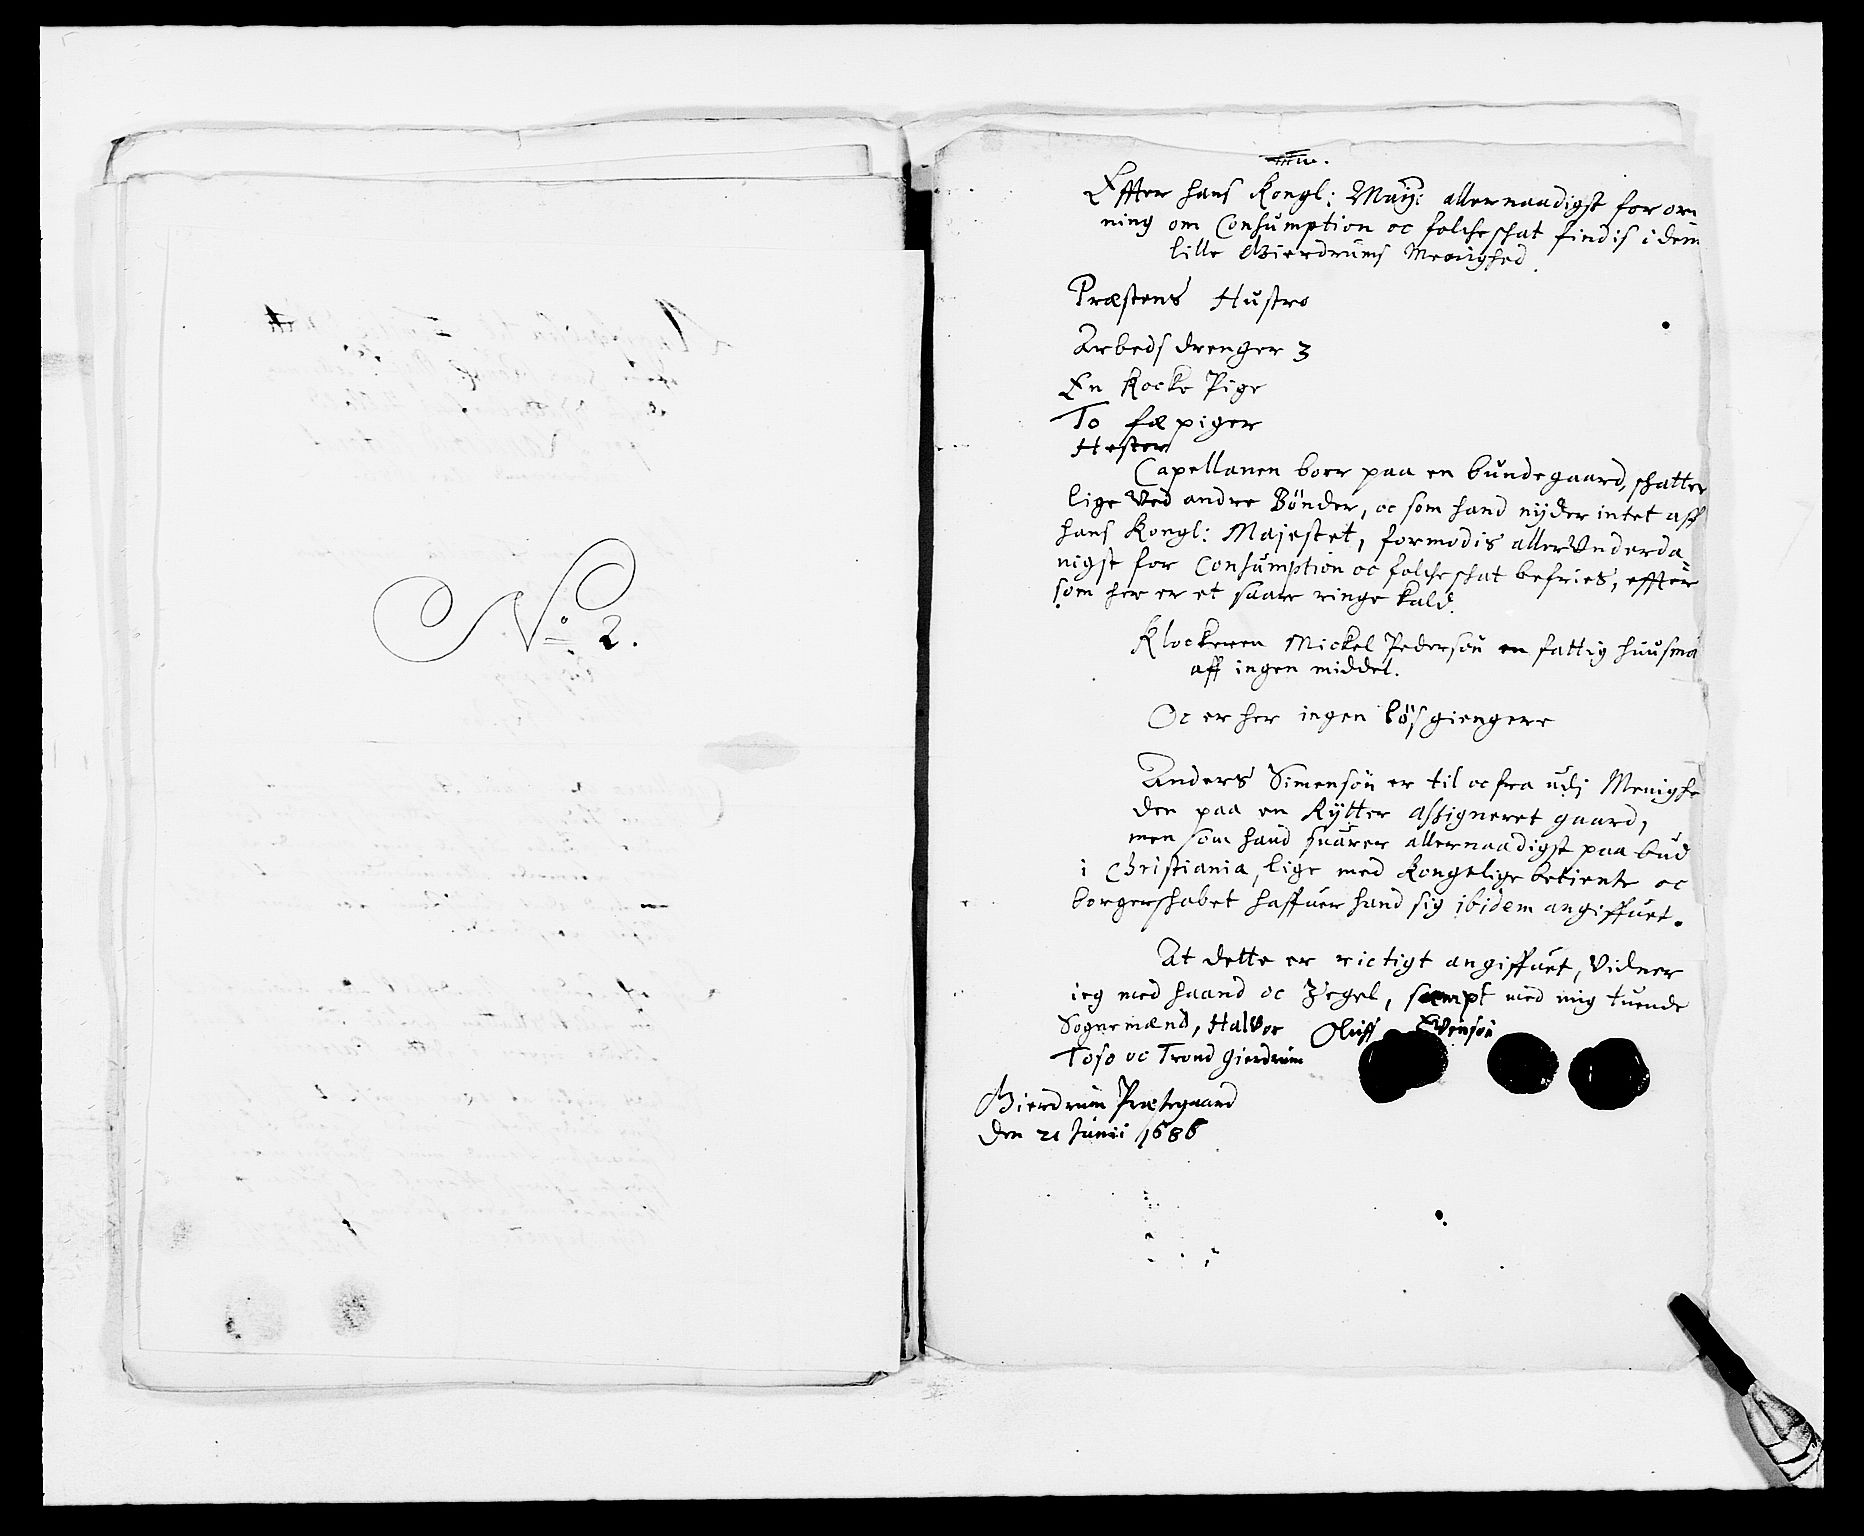 No 2.
Effter hans Kongl: May: allernaadigst foror
ning om Consumption oc folcheschat findis i dem
lille Gierdrums Menighed.
Præstens Hustro
Arbeds drenger 3
En Kocke Pige
To fæpiger
Hester
Capellanen boer paa en bundegaard, schatter
lige Ved andre Bönder, oc som hand nyder intet aff
hans Kongl: Majestet, formodis allerVnderda=
nigst for Consumption oc folcheschat befries, effter
som her er et saare ringe kald.
Klockeren Mickel Pedersøn en fattig huusma
aff ingen middel.
Oc er her ingen lösgiengere
Anders Simensøn er til oc fra udj Menighe
den paa en Rytter Assigneret gaard,
men som hand suarer allernaadigst paa bud
i Christiania, lige med Kongelige betiente oc
borgerskabet haffuer hand sig ibidem angiffuet.
At dette er rictigt angiffuet, Vidner
ieg med haand oc Zegel, sampt med mig tuende
Sognemænd, Halvor Oluff Evensøn
Toso oc Trond Gierdrum
Gierdrum Præstegaard
den 21 Junii 1686